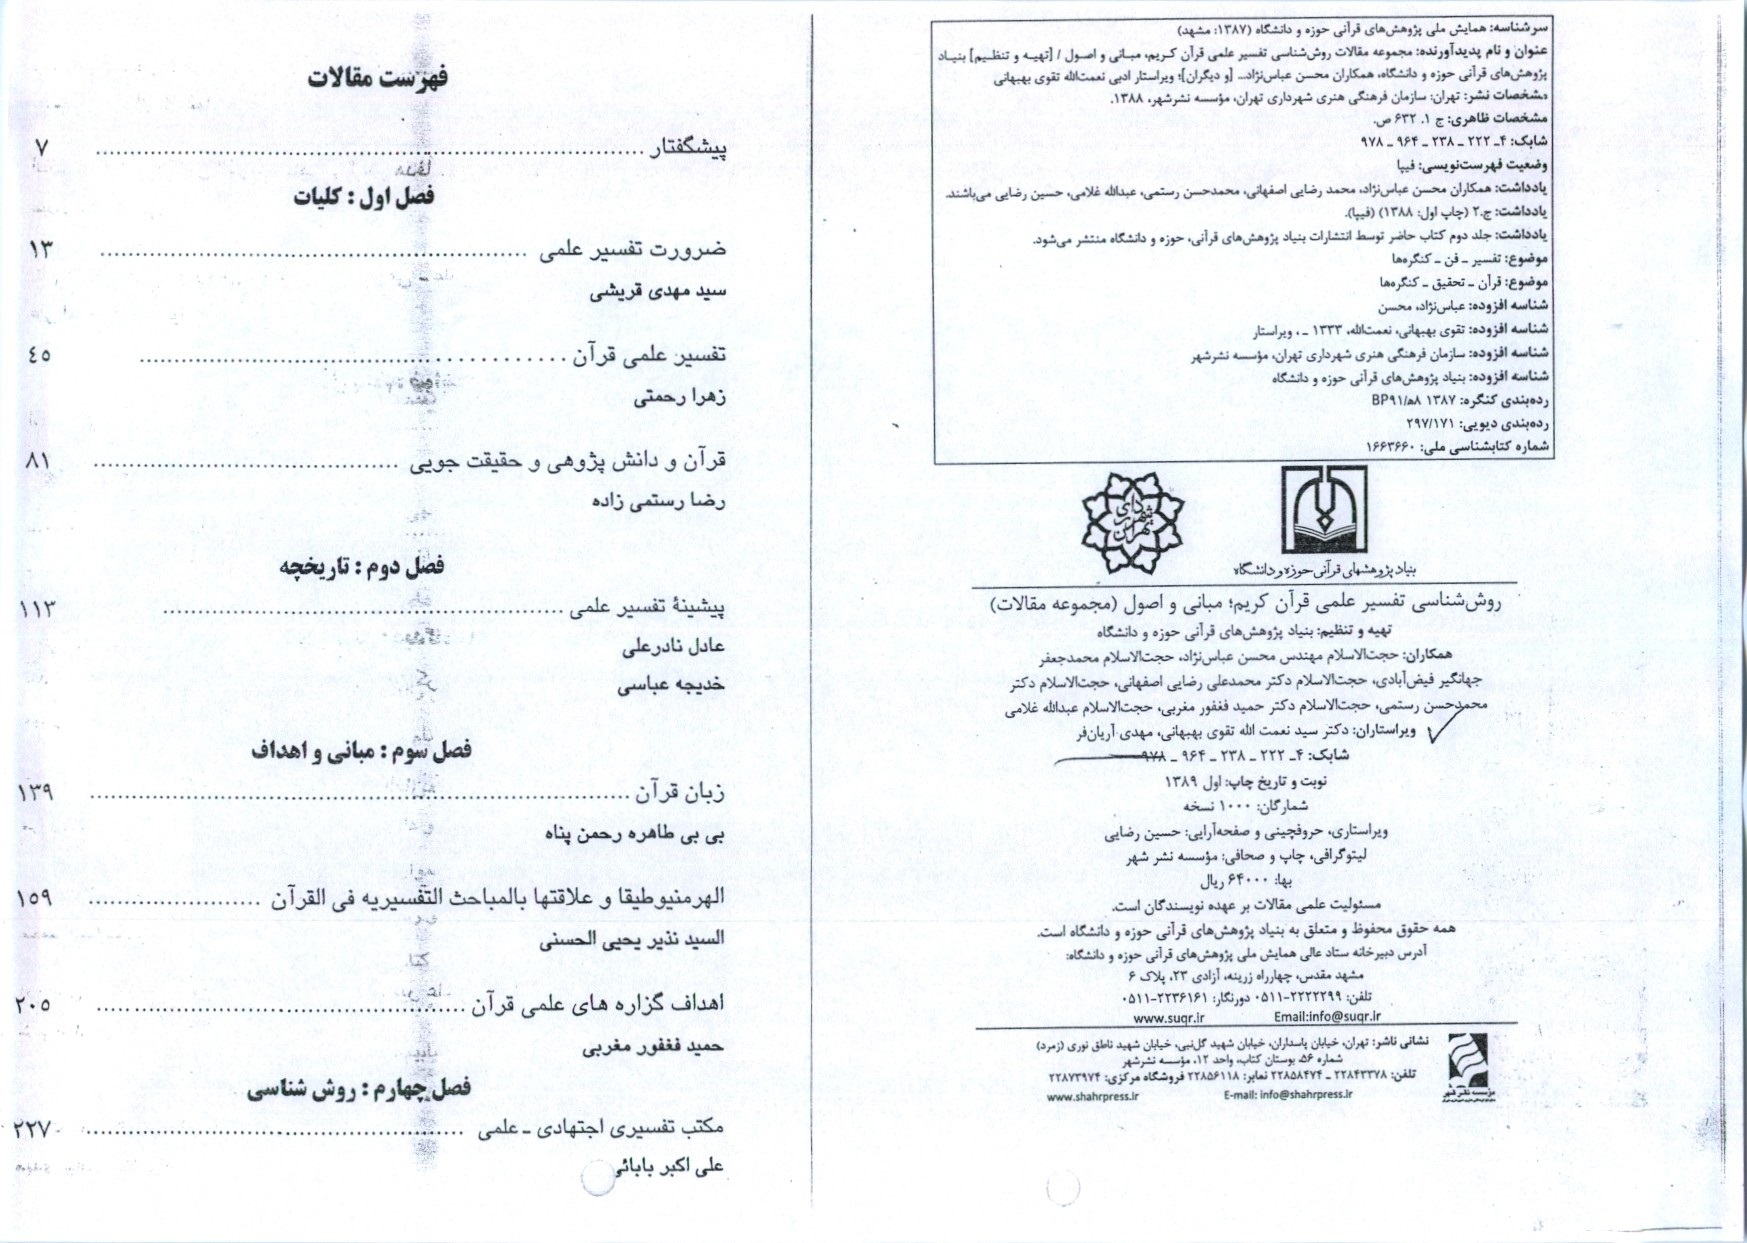 سرشناسه: همایش ملی پژوهش‌های قرآنی حوزه و دانشگاه (۱۳۸۷: مشهد)
عنوان و نام پدیدآورنده: مجموعه مقالات روش‌شناسی تفسیر علمی قرآن کریم، مبانی و اصول / [تهیه و تنظیم] بنیاد
پژوهش‌های قرآنی حوزه و دانشگاه، همکاران محسن عباس‌نژاد... [و دیگران]؛ ویراستار ادبی نعمت‌الله تقوی بهبهانی
مشخصات نشر: تهران: سازمان فرهنگی هنری شهرداری تهران، مؤسسه نشرشهر، ۱۳۸۸.
مشخصات ظاهری: ج ۱. ۶۳۲ ص.
شابک: ۴ـ ۲۲۲ ـ ۲۳۸ ـ ۹۶۴ ـ ۹۷۸
وضعیت فهرست‌نویسی: فیپا
یادداشت: همکاران محسن عباس‌نژاد، محمد رضایی اصفهانی، محمدحسن رستمی، عبدالله غلامی، حسین رضایی می‌باشند.
یادداشت: ج.۲ (چاپ اول: ۱۳۸۸) (فیپا).
یادداشت: جلد دوم کتاب حاضر توسط انتشارات بنیاد پژوهش‌های قرآنی، حوزه و دانشگاه منتشر می‌شود.
موضوع: تفسیر ـ فن ـ کنگره‌ها
موضوع: قرآن ـ تحقیق ـ کنگره‌ها
شناسه افزوده: عباس‌نژاد، محسن
شناسه افزوده: تقوی بهبهانی، نعمت‌الله، ۱۳۳۳ ـ ، ویراستار
شناسه افزوده: سازمان فرهنگی هنری شهرداری تهران، مؤسسه نشرشهر
شناسه افزوده: بنیاد پژوهش‌های قرآنی حوزه و دانشگاه
رده‌بندی کنگره: ۱۳۸۷ ۸ه/BP۹۱
رده‌بندی دیویی: ۲۹۷/۱۷۱
شماره کتابشناسی ملی: ۱۶۶۳۶۶۰
شهرداری تهران
بنیاد پژوهشهای قرآنی حوزه و دانشگاه
روش‌شناسی تفسیر علمی قرآن کریم؛ مبانی و اصول (مجموعه مقالات)
تهیه و تنظیم: بنیاد پژوهش‌های قرآنی حوزه و دانشگاه
همکاران: حجت‌الاسلام مهندس محسن عباس‌نژاد، حجت‌الاسلام محمدجعفر
جهانگیر فیض‌آبادی، حجت‌الاسلام دکتر محمدعلی رضایی اصفهانی، حجت‌الاسلام دکتر
محمدحسن رستمی، حجت‌الاسلام دکتر حمید فغفور مغربی، حجت‌الاسلام عبدالله غلامی
ویراستاران: دکتر سید نعمت الله تقوی بهبهانی، مهدی آریان‌فر
شابک: ۴ـ ۲۲۲ ـ ۲۳۸ ـ ۹۶۴ ـ ۹۷۸
نوبت و تاریخ چاپ: اول ۱۳۸۹
شمارگان: ۱۰۰۰ نسخه
ویراستاری، حروفچینی و صفحه‌آرایی: حسین رضایی
لیتوگرافی، چاپ و صحافی: مؤسسه نشر شهر
بها: ۶۴۰۰۰ ریال
مسئولیت علمی مقالات بر عهده نویسندگان است.
همه حقوق محفوظ و متعلق به بنیاد پژوهش‌های قرآنی حوزه و دانشگاه است.
آدرس دبیرخانه ستاد عالی همایش ملی پژوهش‌های قرآنی حوزه و دانشگاه:
مشهد مقدس، چهارراه زرینه، آزادی ۲۳، پلاک ۶
تلفن: ۲۲۲۲۲۹۹-۰۵۱۱ دورنگار: ۲۲۳۶۱۶۱-۰۵۱۱
www.suqr.ir Email:info@suqr.ir
نشانی ناشر: تهران، خیابان پاسداران، خیابان شهید گل‌نبی، خیابان شهید ناطق نوری (زمرد)
شماره ۵۶، بوستان کتاب، واحد ۱۲، مؤسسه نشرشهر
تلفن: ۲۲۸۴۳۳۷۸ ـ ۲۲۸۵۸۴۷۴ نمابر: ۲۲۸۵۶۱۱۸ فروشگاه مرکزی: ۲۲۸۷۳۹۷۴
www.shahrpress.ir E-mail: info@shahrpress.ir
مؤسسه نشر شهر
فهرست مقالات
پیشگفتار ........ ۷
فصل اول : کلیات
ضرورت تفسیر علمی ........ ۱۳
سید مهدی قریشی
تفسیر علمی قرآن ........ ٤٥
زهرا رحمتی
قرآن و دانش پژوهی و حقیقت جویی ........ ۸۱
رضا رستمی زاده
فصل دوم : تاریخچه
پیشینهٔ تفسیر علمی ........ ۱۱۳
عادل نادرعلی
خدیجه عباسی
فصل سوم : مبانی و اهداف
زبان قرآن ........ ۱۳۹
بی بی طاهره رحمن پناه
الهرمنیوطیقا و علاقتها بالمباحث التفسیریه فی القرآن ........ ۱٥۹
السید نذیر یحیی الحسنی
اهداف گزاره های علمی قرآن ........ ۲۰٥
حمید فغفور مغربی
فصل چهارم : روش شناسی
مکتب تفسیری اجتهادی ـ علمی ........ ۲۲۷
علی اکبر بابائی